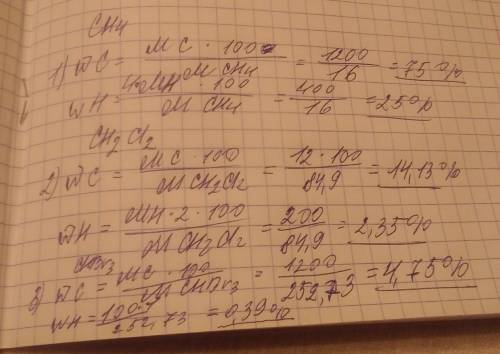 CH4
1) wC = MC · 100 / M CH4 = 1200 / 16 = 75%
wH = 4MH · 100 / M CH4 = 400 / 16 = 25%
CH2Cl2
2) wC = MC · 100 / M CH2Cl2 = 12 · 100 / 84,9 = 14,13%
wH = MH · 2 · 100 / M CH2Cl2 = 200 / 84,9 = 2,35%
CHBr3
3) wC = MC · 100 / M CHBr3 = 1200 / 252,73 = 4,75%
wH = 100 / 252,73 = 0,39%